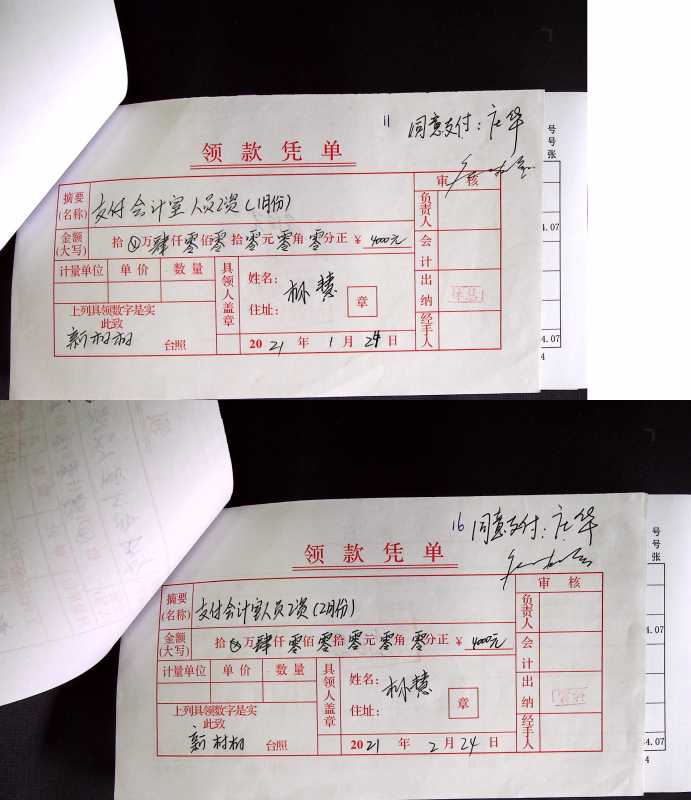 11 同意支付：庄华
领款凭单
审核
摘要(名称) 支付会计室人员工资(1月份)
负责人
金额(大写) 拾 万肆仟零佰零拾零元零角零分正 ¥ 4000元
会计
计量单位 单价 数量
具领人盖章
姓名： 林慧
住址：
章
出纳
上列具领数字是实
此致
新村村 台照
2021年1月24日
经手人
号
号
张
4.07
4.07
4
16 同意支付：庄华
领款凭单
审核
摘要(名称) 支付会计室人员工资(2月份)
负责人
金额(大写) 拾 万肆仟零佰零拾零元零角零分正 ¥ 4000元
会计
计量单位 单价 数量
具领人盖章
姓名： 林慧
住址：
章
出纳
上列具领数字是实
此致
新村村 台照
2021年2月24日
经手人
号
号
张
4.07
4.07
4